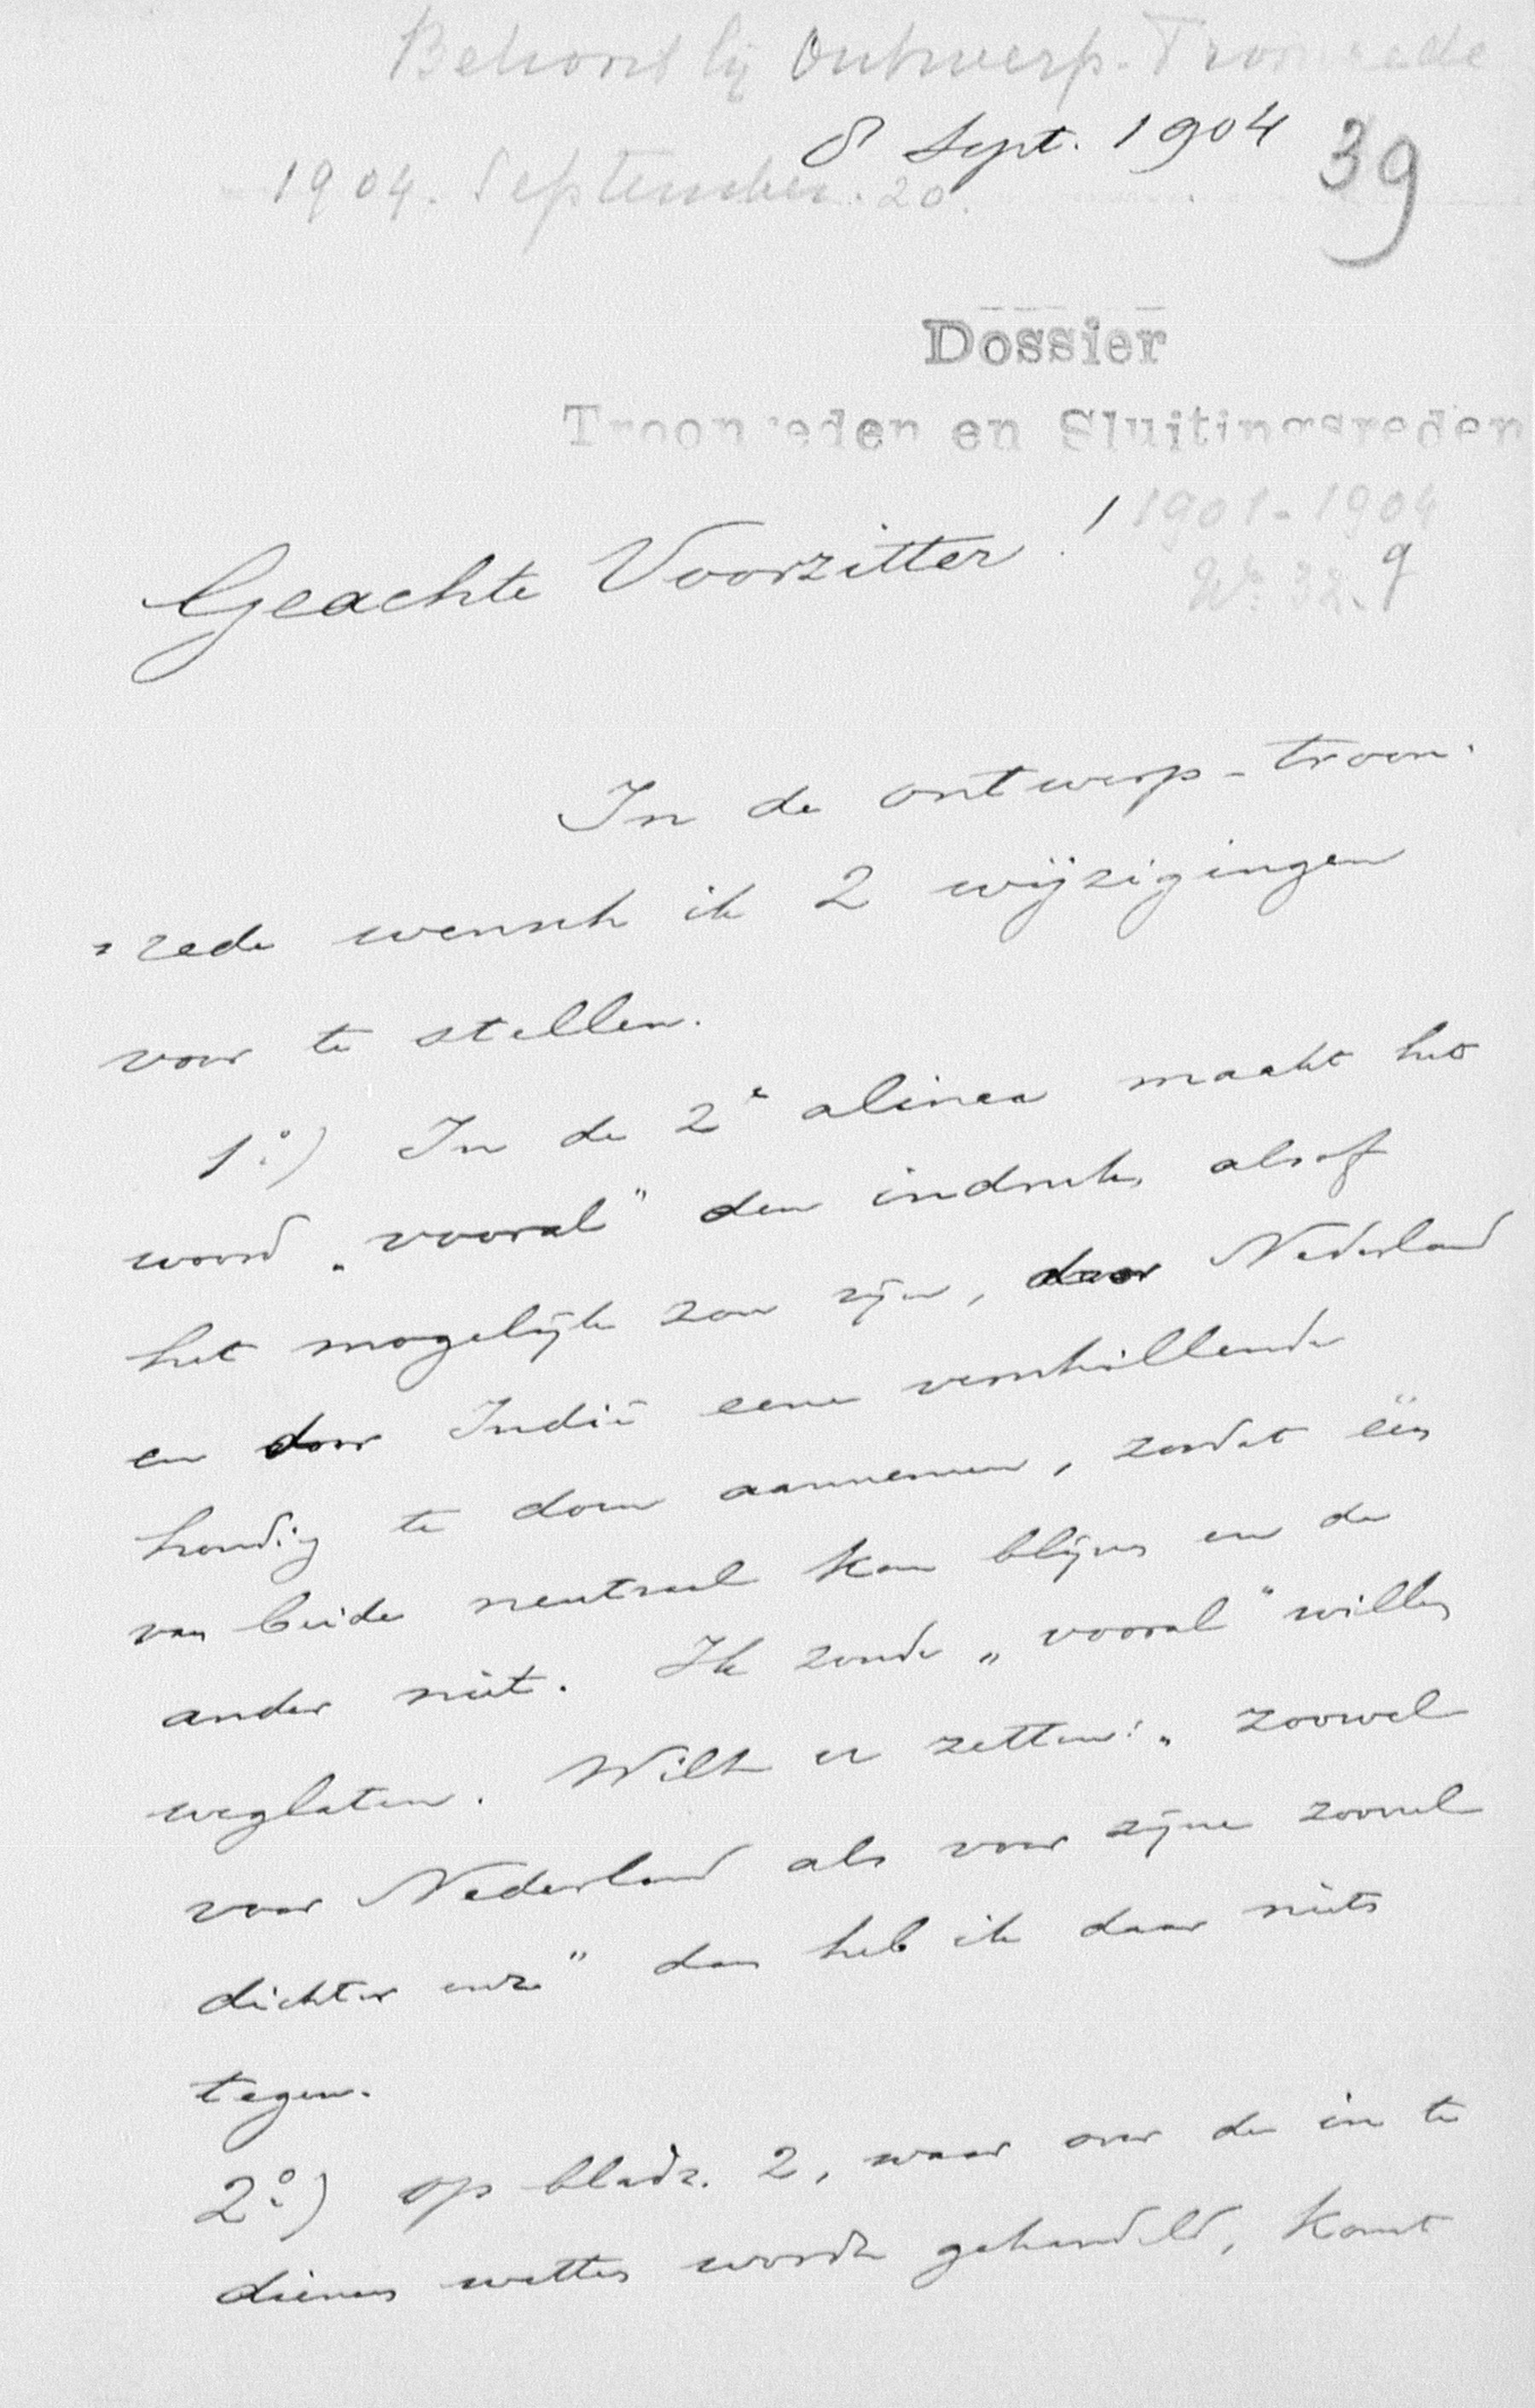 Behoort bij Ontwerp-Troonrede
8 Sept. 1904
39
1904. September. 20.
Dossier
Troonreden en Sluitingsreden
1901-1904
No. 32.
Geachte Voorzitter!
In de ontwerp-troon-
=rede wensch ik 2 wijzigingen
voor te stellen.
1o.) In de 2e alinea maakt het
woord "vooral" den indruk, alsof
het mogelijk zou zijn, door Nederland
en door Indië eene verschillende
houding te doen aannemen, zoodat één
van beide neutraal kan blijven en de
ander niet. Ik zoude "vooral" willen
weglaten. Wilt u zetten: "zoowel
voor Nederland als voor zijne zooveel
dichter enz" dan heb ik daar niets
tegen.
2o.) op bladz. 2, waar over de in te
dienen wetten wordt gehandeld, komt